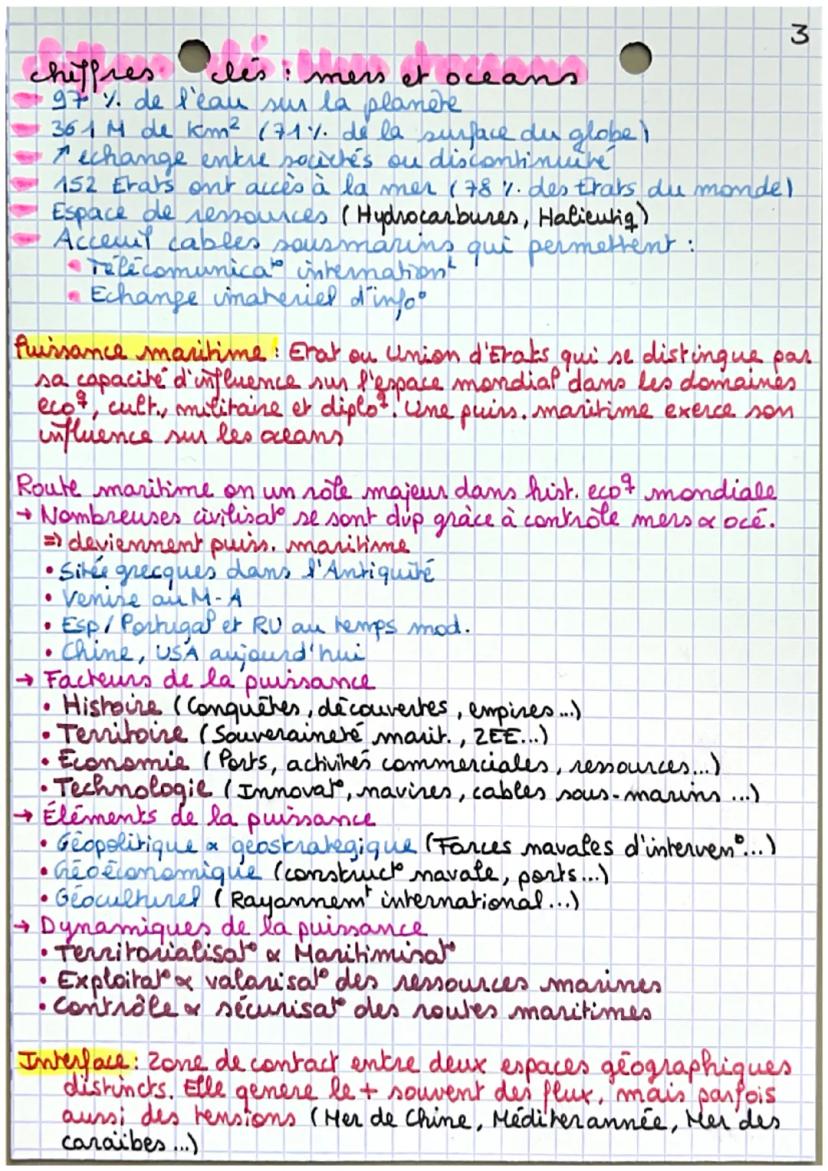 3
chiffres clés : mers et océans
97 % de l'eau sur la planète
361 M de km² (71% de la surface du globe)
↗ échange entre sociétés ou discontinuité
152 Etats ont accès à la mer (78 % des Etats du monde)
Espace de ressources (Hydrocarbures, Halieutiq)
Acceuil cables sousmarins qui permettent :
• Télécomunicaᵗᵒ internationˡ
• Echange imateriel d'infoᵒ
Puissance maritime : Etat ou Union d'Etats qui se distingue par
sa capacité d'influence sur l'espace mondial dans les domaines
ecoq, cult., militaire et diploq. Une puiss. maritime exerce son
influence sur les océans
Route maritime on un rôle majeur dans hist. ecoq mondiale
→ Nombreuses civilisatᵒ se sont dvp grâce à contrôle mers & océ.
⇒ deviennent puiss. maritime
• Sitée grecques dans l'Antiquité
• Venise au M-A
• Esp/Portugal et RU au temps mod.
• Chine, USA aujourd'hui
→ Facteurs de la puissance
• Histoire (Conquêtes, découvertes, empires...)
• Territoire (Souveraineté marit., ZEE...)
• Economie (Ports, activités commerciales, ressources...)
• Technologie (Innovatᵒ, navires, cables sous-marins ...)
→ Éléments de la puissance
• Géopolitique & géostrategique (Forces navales d'intervenᵗᵒ...)
• Géoéconomique (constructᵒ navale, ports...)
• Géoculturel (Rayonnemᵗ international...)
→ Dynamiques de la puissance
• Territorialisatᵒ & Maritimisatᵒ
• Exploitatᵒ & valorisatᵒ des ressources marines
• Contrôle & sécurisatᵒ des routes maritimes
Interface : Zone de contact entre deux espaces géographiques
distincts. Elle génère le + souvent des flux, mais parfois
aussi des tensions (Mer de Chine, Méditerannée, Mer des
caraïbes ...)